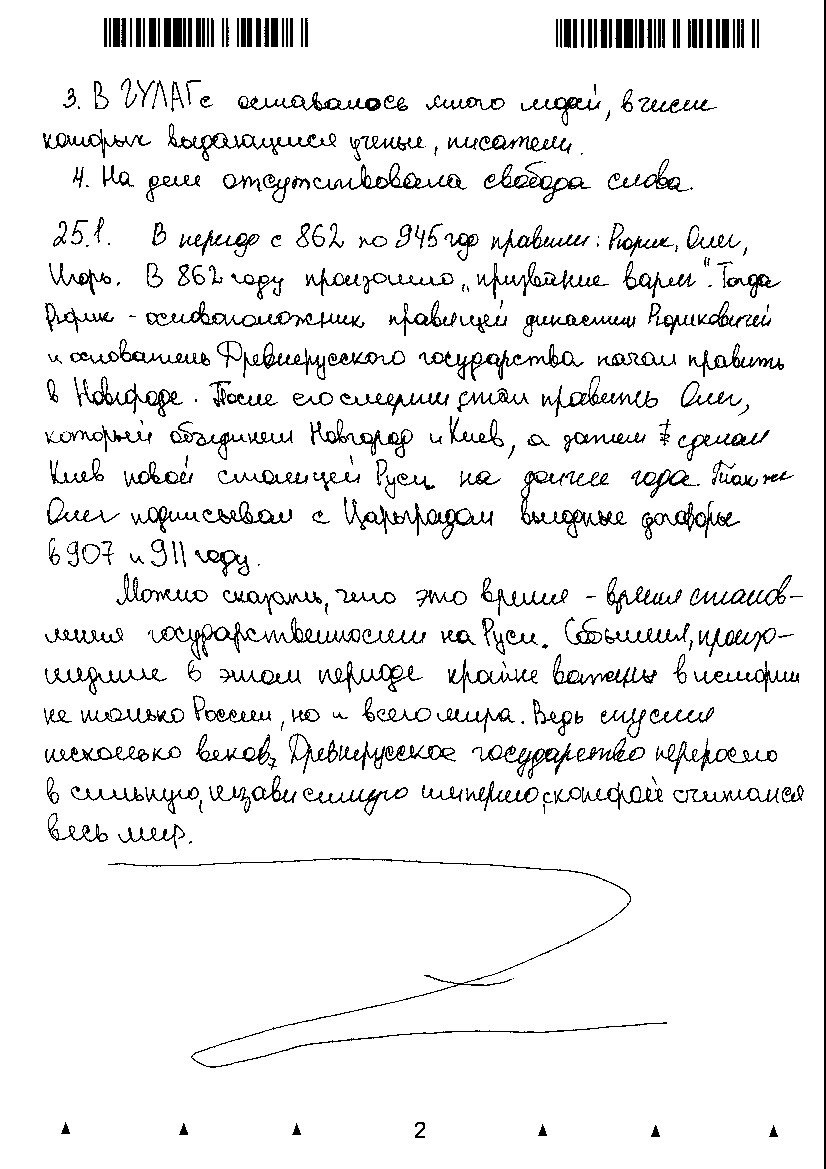 3. В ГУЛАГе оставалось много людей, в числе
которых выдающиеся ученые, писатели.
4. На деле отсутствовала свобода слова.
25.1. В период с 862 по 945 год правили: Рюрик, Олег,
Игорь. В 862 году произошло „призвание варяг". Тогда
Рюрик - основоположник правящей династии Рюриковичей
и основатель Древнерусского государства начал править
в Новгороде. После его смерти стал править Олег,
который объединил Новгород и Киев, а затем сделал
Киев новой столицей Руси на долгие года. Также
Олег подписывал с Царьградом выгодные договоры
в 907 и 911 году.
Можно сказать, что это время - время станов-
ления государственности на Руси. События, произо-
шедшие в этом периоде крайне важны в истории
не только России, но и всего мира. Ведь спустя
несколько веков, Древнерусское государство переросло
в сильную, независимую империю, с которой считался
весь мир.
2